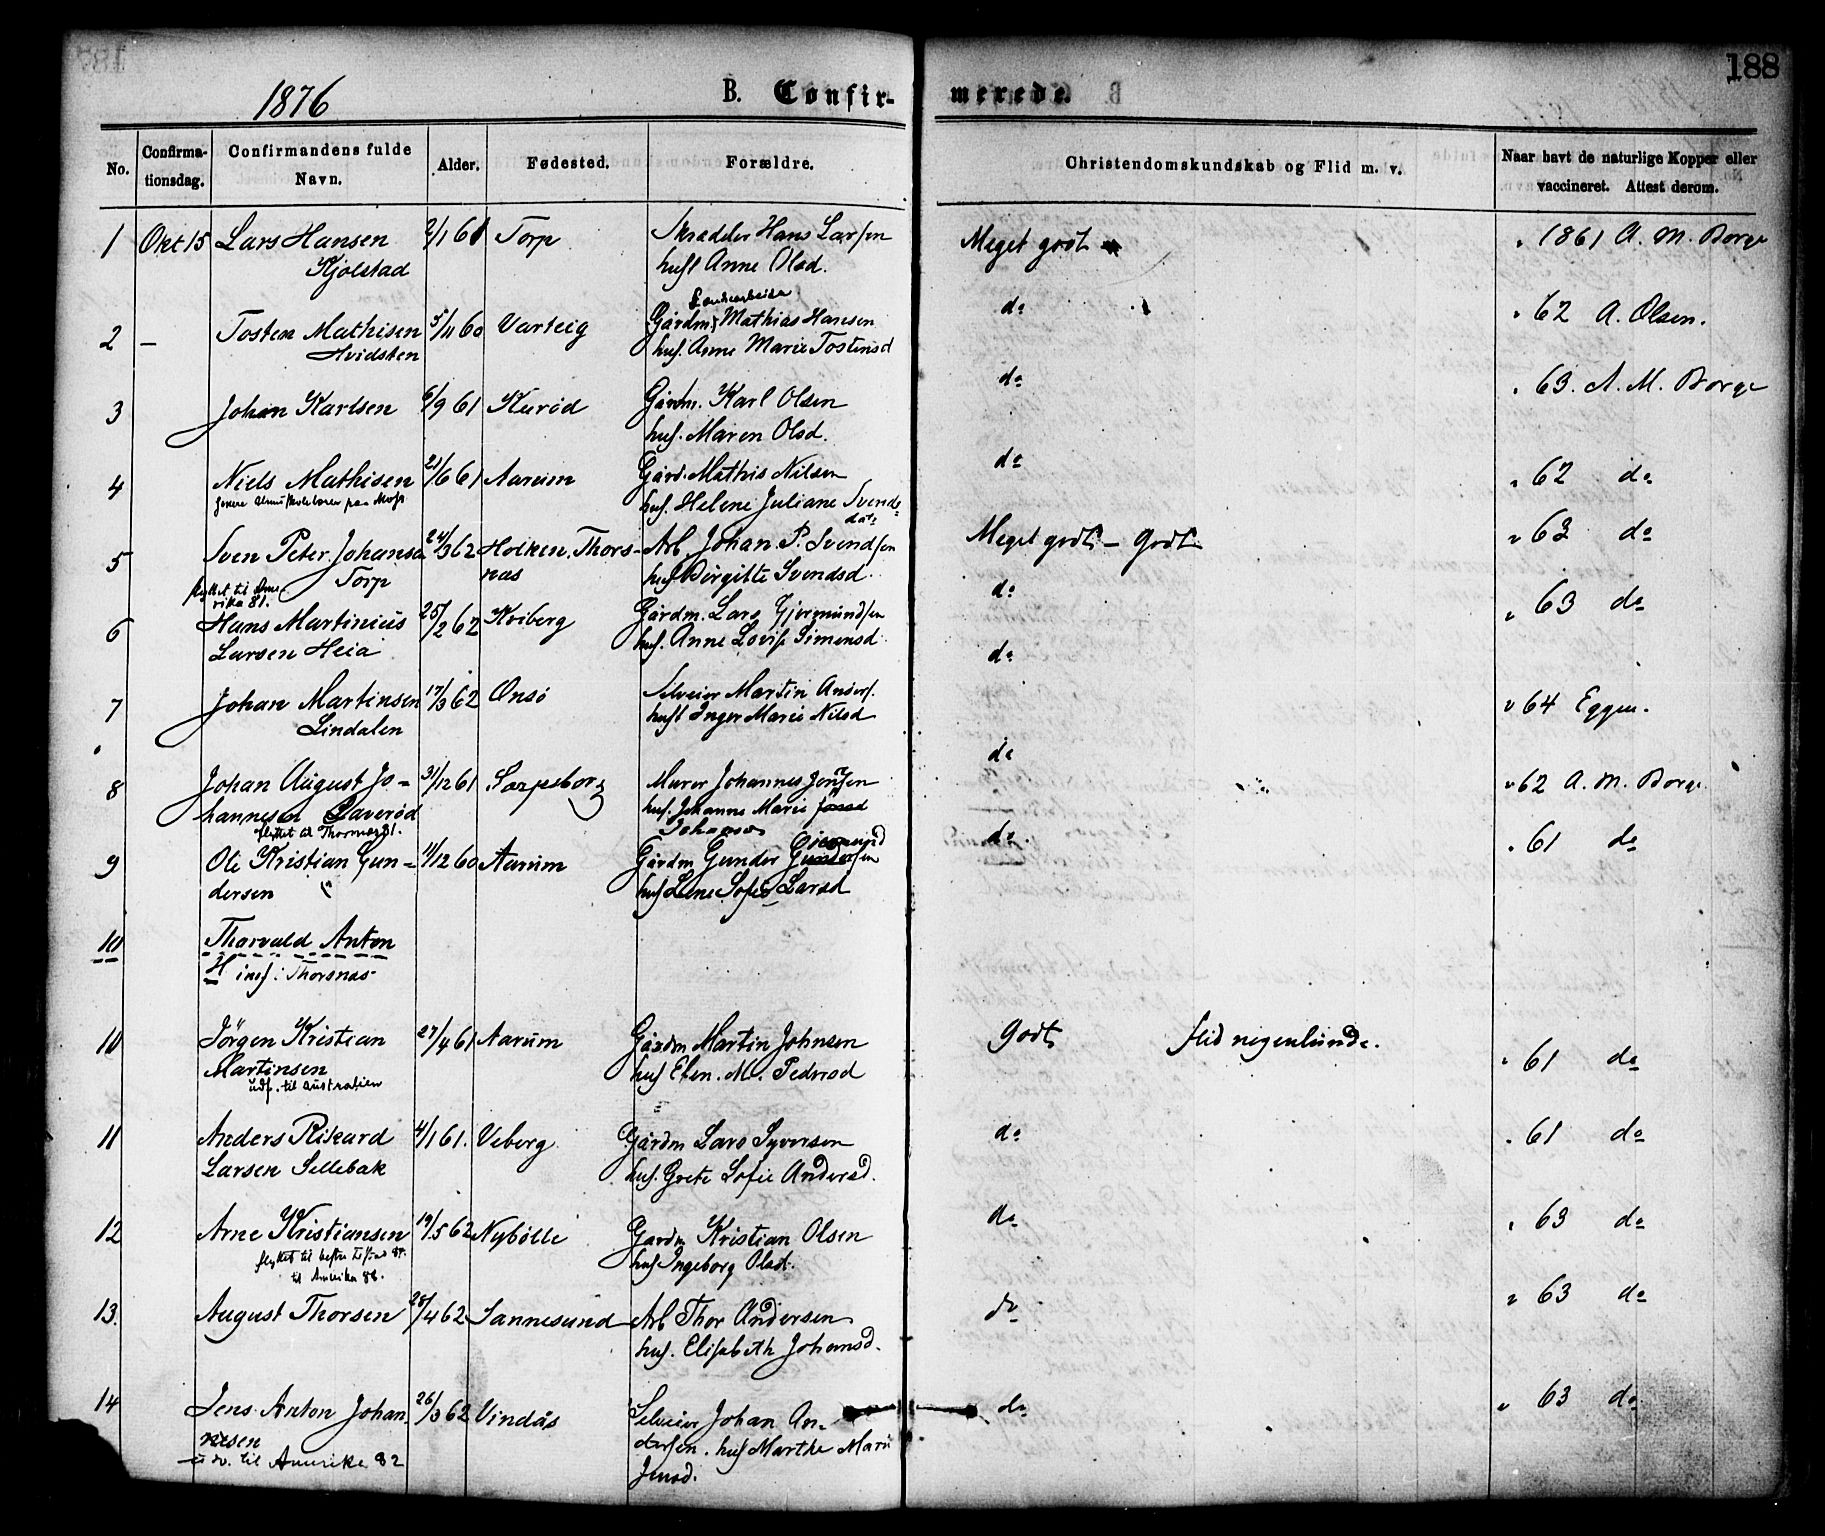 188
1876
B. Confir-
merede.
No.
Confirma-
tionsdag.
Confirmandens fulde
Navn.
Alder.
Fødested.
Forældre.
Christendomskundskab og Flid m. v.
Naar havt de naturlige Kopper eller
vaccineret. Attest derom.
1 Okt 15 Lars Hansen 2/1 61 Torp Skrædder Hans Larsen Meget godt " 1861 A. M. Borge
Kjølstad hust Anne Olsd.
Landearbeider
2 — Tosten Mathisen 5/11 60 Varteig Gårdm. Mathias Hansen do " 62 A. Olsen.
Hvidsten hus. Anne Marie Tostensd
3 Johan Karlsen 6/9 61 Kurød Gårdm. Karl Olsen do " 63. A. M. Borge
hus. Maren Olsd.
4 Niels Mathisen 21/6 61 Aarum Gård. Mathis Nilsen do " 62 do
hus. Helene Juliane Svends-
datr
5 Sven Peter Johansen 24/3 62 Holken, Thors- Arb. Johan P. Svendsen Meget godt - Godt " 63 do
Torp næs hus Birgitte Svendsd.
flyttet til Ame-
rika 81.
6 Hans Martinius 25/2 62 Kviberg Gårdm. Lars Gjermundsen do " 63 do
Larsen Heia hus. Anne Lovise Simensd.
7 Johan Martinsen 17/3 62 Onsø Selveier Martin Anders. do " 64 Eggen.
Lindalen hust Inger Marie Nilsd
8 Johan August Jo- 31/12 61 Sarpsborg Murer Johannes Jonsen do " 62 A. M. Borge
hannesen hus. Johanne Marie
flyttet til
9 Ole Kristian Gun- 11/12 60 Aarum Gårdm Gunder do " 61 do
dersen hus Lene Sofie Larsd
10 Thorvald Anton
H Thorsnæs
10 Jörgen Kristian 27/4 61 Aarum Gårdm Martin Johnsen Godt flid nogenlunde. " 61 do
Martinsen hus Elen. M. Pedersd
udf. til Australien
11 Anders Rikard 4/1 61. Veberg Gårdm Lars Syversen do " 61 do
Larsen Sellebak hus. Grete Sofie Andersd.
12 Arne Kristiansen 19/5 62 Nybölle Gardm Kristian Olsen do " 63 do
hus Ingeborg Olsd.
til Amerika 88.
13. August Thorsen 28/4 62 Sannesund Arb Thor Andersen do " 63 do
hus. Elisabeth Johansd.
14 Jens Anton Johan 26/3 62 Vindås Selveier Johan An- do " 63 do
nesen dersen. hus Marthe Marie
udv. til Amerika 82 Jensd.